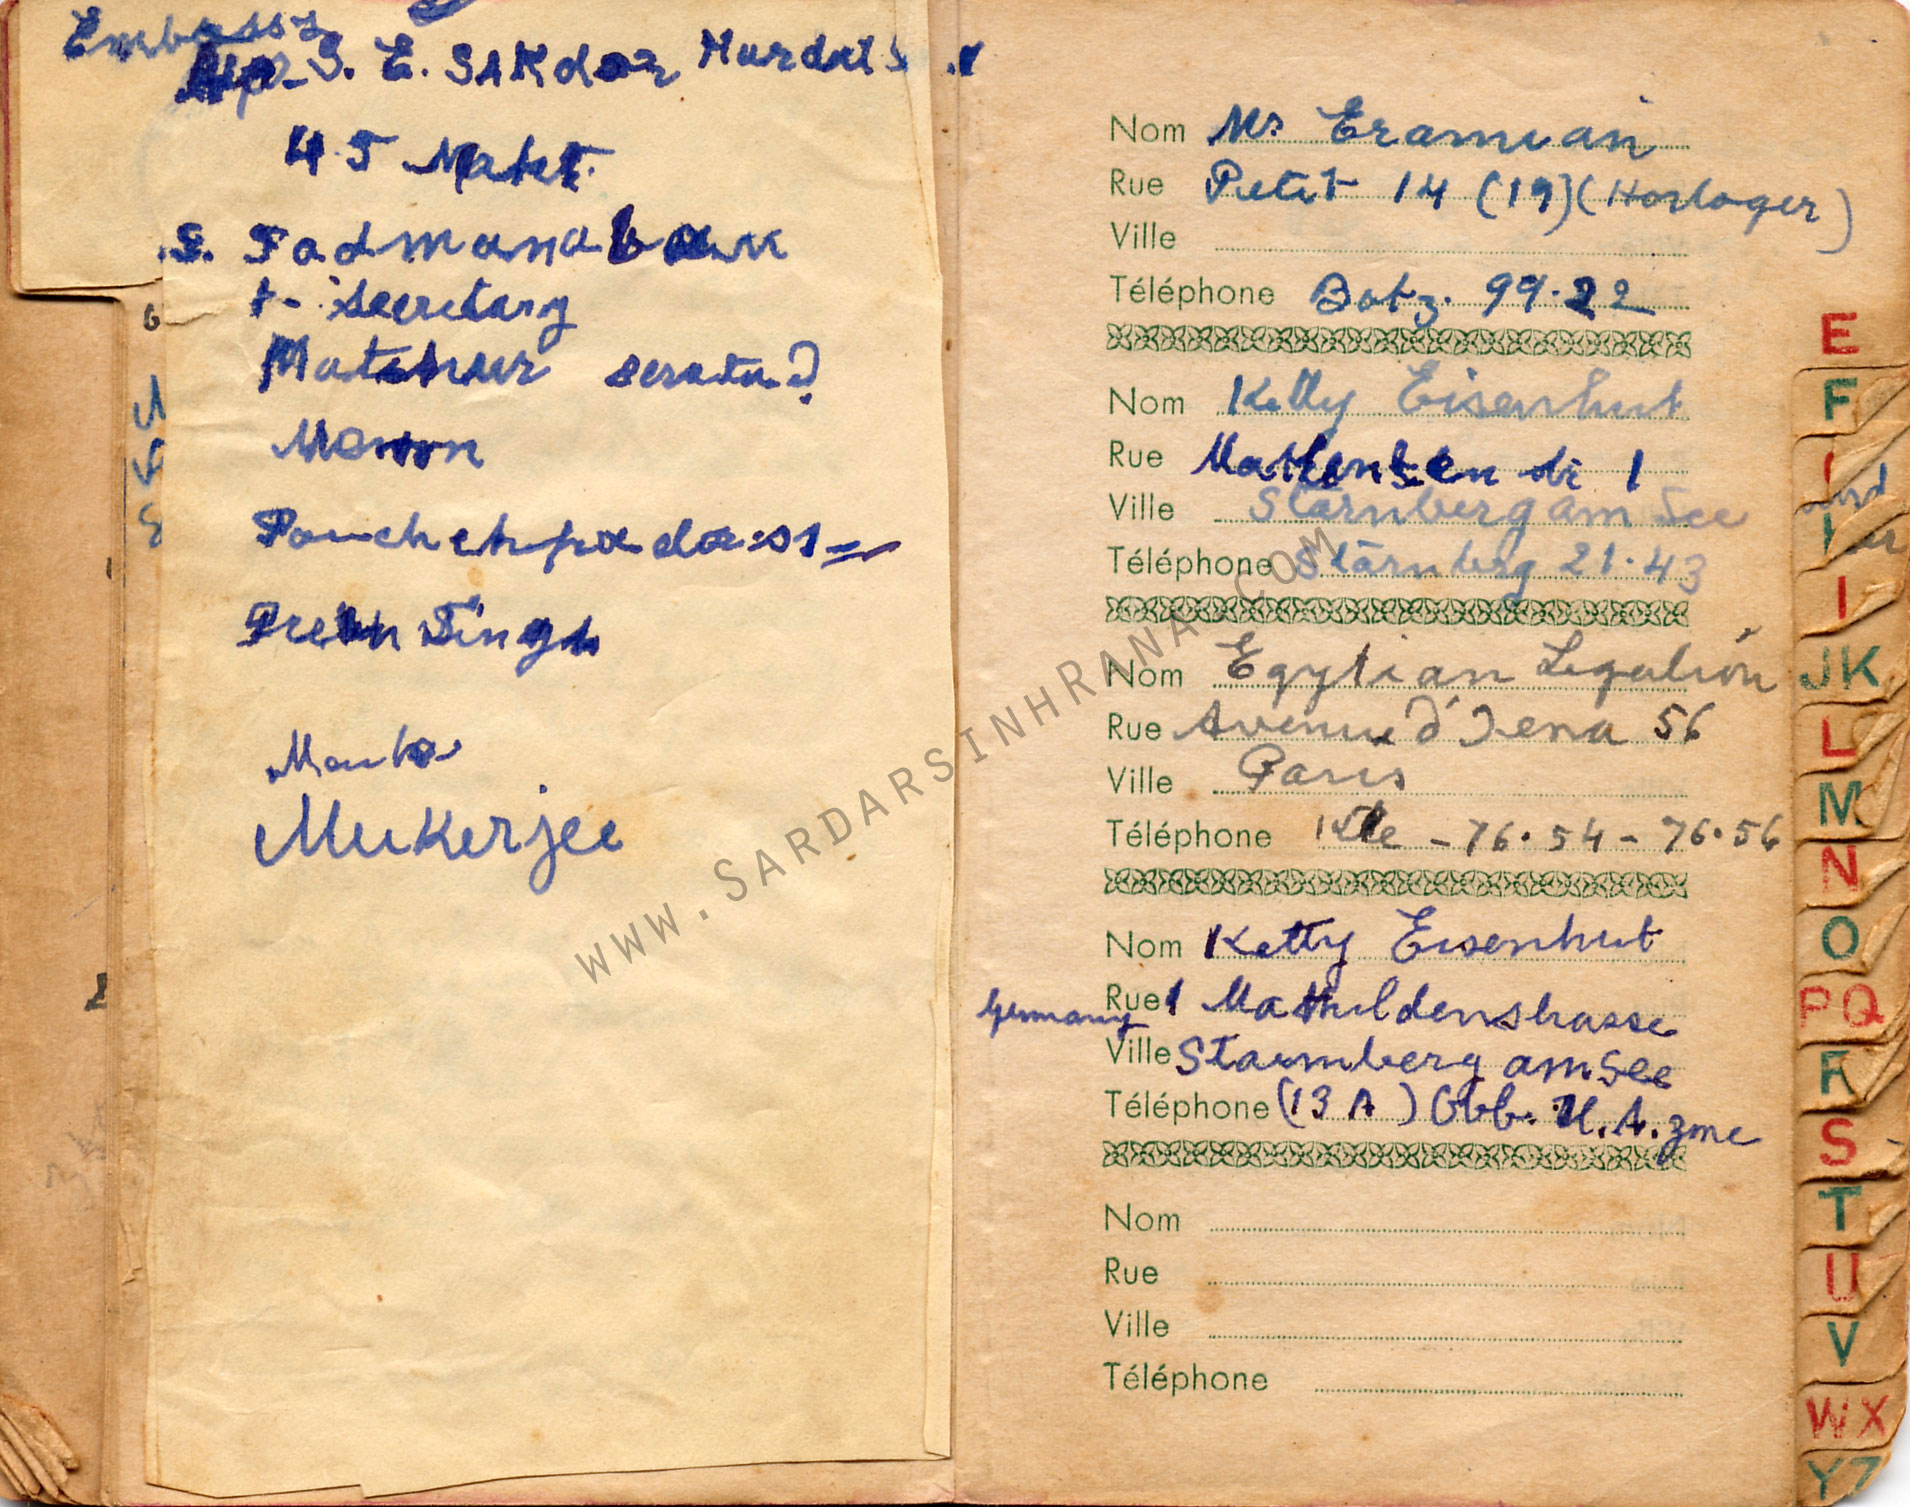 Embassy
S. E. SARdar Hurdit S
45
S. Padmanab
t- Secretary
Menon
Prem Singh
Mukerjee
Nom Mr. Eramian
Rue Petit 14 (19) (Horloger)
Ville
Téléphone Botz. 99.22
Nom Ketty Eisenhut
Rue 1
Ville Starnberg am See
Téléphone Starnberg 21.43
Nom Egytian Legation
Rue Avenue d'Iena 56
Ville Paris
Téléphone Kle - 76.54 - 76.56
Nom Ketty Eisenhut
Rue 1 Mathildenstrasse
Germany
Ville Starnberg am See
Téléphone (13 A) Obb. U.A. zone
Nom
Rue
Ville
Téléphone
E
F
I
JK
L
M
N
O
PQ
R
S
T
U
V
WX
YZ
WWW.SARDARSINHRANA.COM